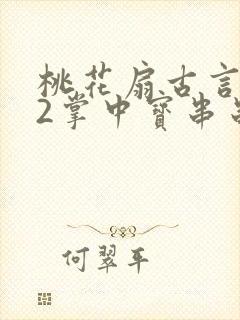 桃花扇古言
2掌中寶串
何翠平